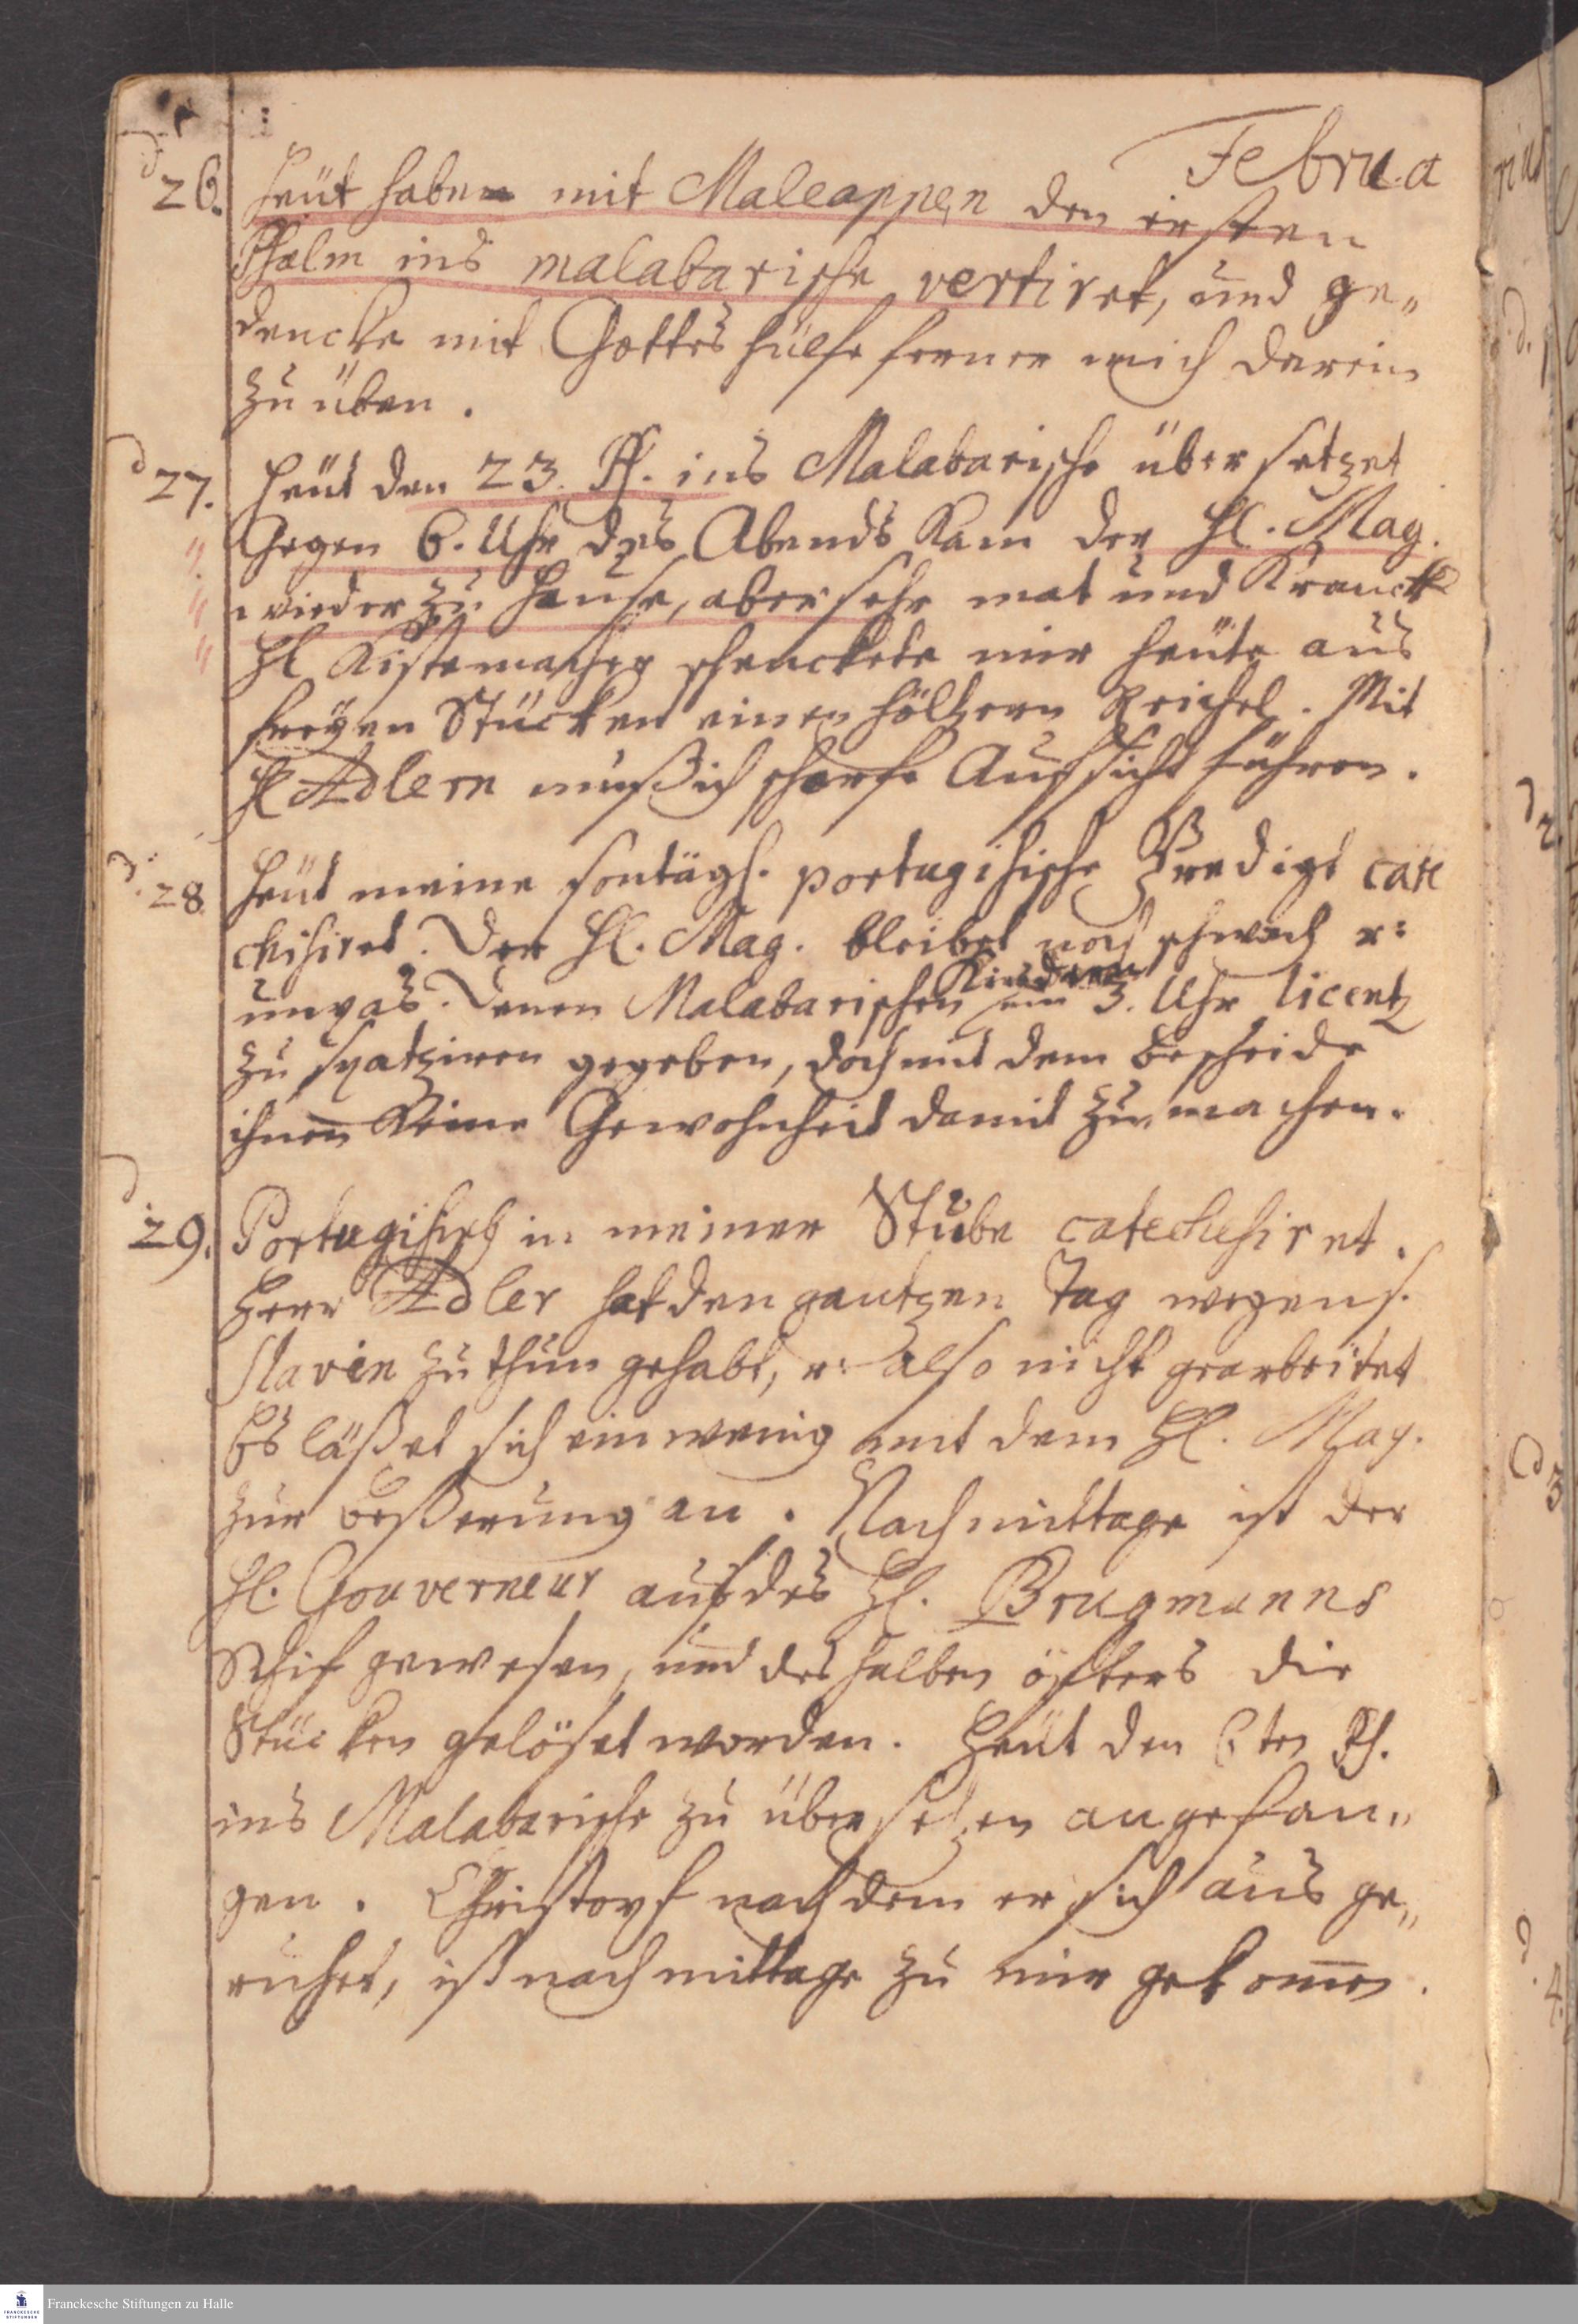 Februa
d 26. Heüt haben mit Maleappen den ersten
Psalm ins malabarische vertiret, und ge„
dencke mit Gottes hülfe ferner mich darein
zu üben.
d 27. Heüt den 23. Ps. ins Malabarische übersetzet
Gegen 6. Uhr des Abends kam der Hl. Mag.
wieder zu Hause, aber sehr mat und Kranck
Hl Kistemacher schenckete mir heüte aus
freyen Stücken einen höltzern . Mit
Hl Adlern muß ich scharfe Aufsicht führen.
d. 28. Heüt meine sontägl. portugisische Predigt cate
chisiret. Der Hl. Mag. bleibet noch schwach u:
unpas. Denen Malabarischen Kindern um 3. Uhr licentz
zu spatziren gegeben, doch mit dem Bescheide
ihnen keine Gewohnheit damit zu machen.
d 29. Portugisisch in meiner Stube catechesiret.
Herr Adler hat den gantzen Tag wegen s.
Slavin zu thun gehabt, u: also nicht gearbeitet
Es läßet sich ein wenig mit dem Hl. Mag.
zur Beßerung an. Nachmittage ist der
Hl. Gouverneur auf des Hl. Brugmanns
Schif gewesen, und deshalben öfters die
Stücken gelöset worden. Heüt den 6ten Ps.
ins Malabarische zu übersetzen angefan„
gen. Christoph nachdem er sich aus ge„
ruhet, ist nachmittage zu mir gekom̄en.
Franckesche Stiftungen zu Halle